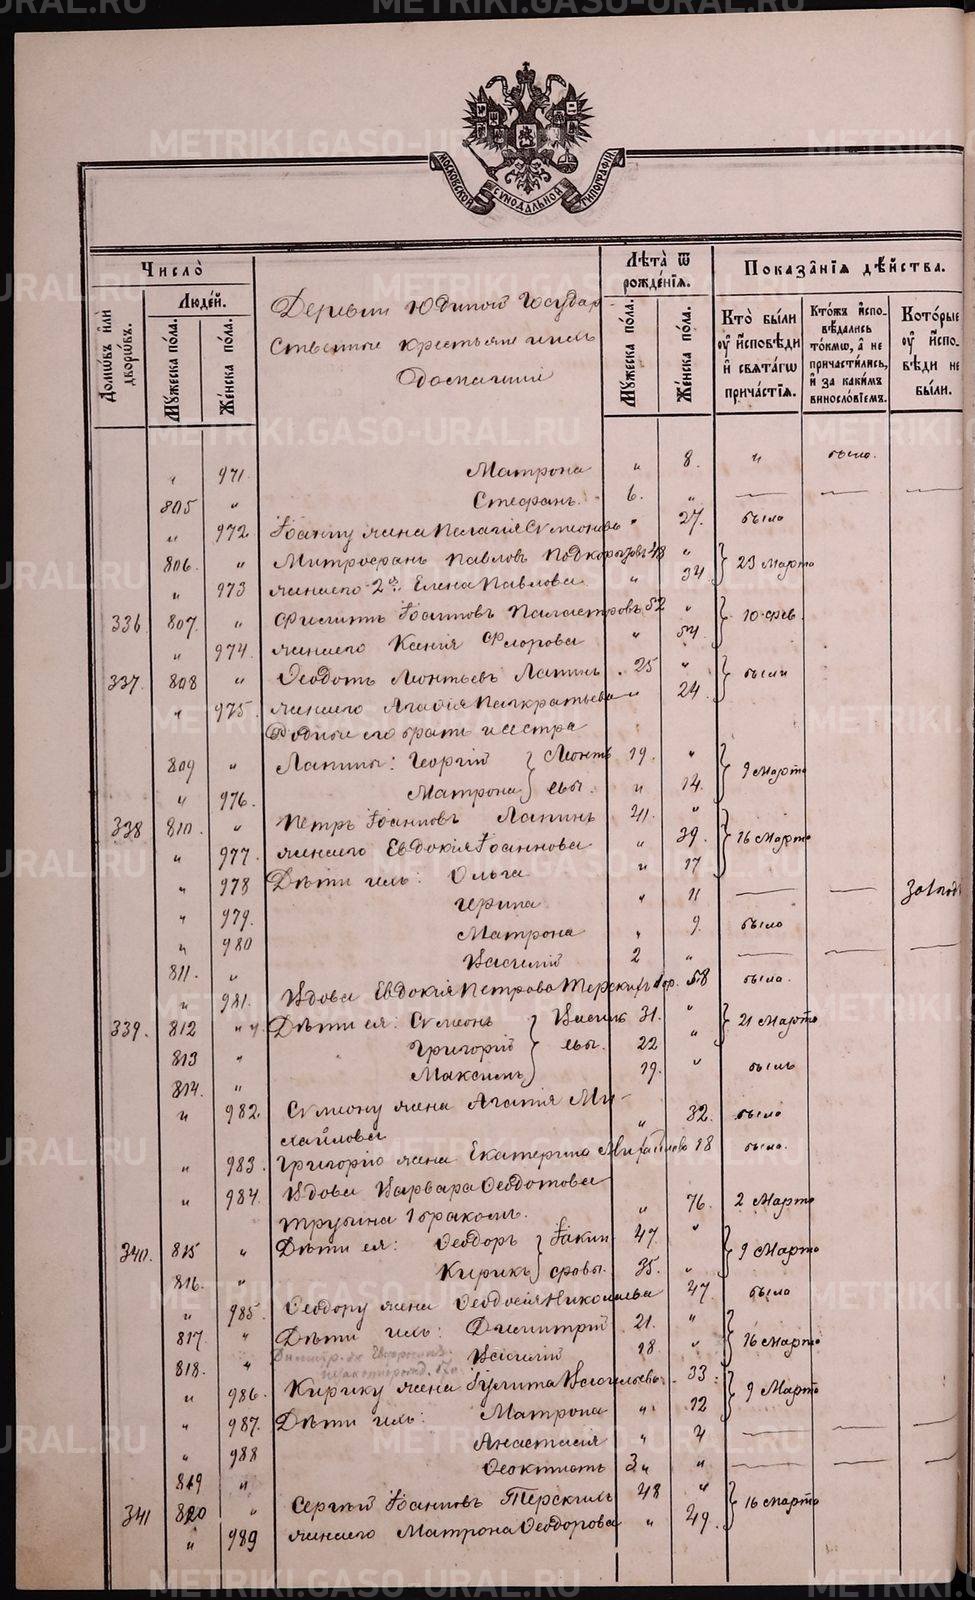 METRIKI.GASO-URAL.RU
МОСКОВСКОЙ СѴНОДАЛЬНОЙ ТИПОГРАФІИ
Число̀ Лѣта̀ ѿ рожде́нїѧ. Показа̂нїѧ дѣ́йства.
Домѡ́въ и҆лѝ дворѡ́въ. Люде́й. Мꙋ́жеска по́ла. Же́нска по́ла.
Деревни Юдиной Государ
ственные крестьяне и ихъ
домашніе
Мꙋ́жеска по́ла. Же́нска по́ла.
Кто̀ бы́ли ᲂу҆ и҆сповѣ́ди и҆ свѧта́гѡ прича́стїѧ.
Кто́жъ и҆спо- вѣ́дались то́кмѡ, а҆ не причасти́лись, и҆ за каки́мъ виносло́вїемъ.
Кото́рые ᲂу҆ и҆спо- вѣ́ди не бы́ли.
" 971 Матрона " 8. " было.
805 " Стефанъ 6. " — — —
" 972 Іоанну жена Пелагія Сѵмеонова " 27. было
806. " Митрофанъ Павловъ Подкорытовъ 48 " 23 Марта
" 973 жена его 2ая Елена Павлова " 34
336 807. " Филиппъ Іоанновъ 52 " 10 фев.
" 974. жена его Ксенія Флорова " 54.
337. 808 " Ѳеодотъ Леонтьевъ Лапинъ 25 " были
" 975. жена его Агафія Панкратьева " 24.
Родные его братъ и сестра
809 " Лапины: Георгій } Леонть 19. " 9 Марта
" 976. Матрона } евы. " 14.
338 810. " Петръ Іоанновъ Лапинъ 41. " 16 Марта
" 977. жена его Евдокія Іоаннова " 39.
" 978 Дѣти ихъ: Ольга " 17
" 979. Ирина " 11 — —
" 980 Матрона " 9. было
811. " Василій 2 " — — —
" 981. Вдова Евдокія Петрова 58 была.
339. 812 " Дѣти ея: Сѵмеонъ } Васил 31. " 21 Марта
813 " Григорій } евы. 22 "
814. " Максимъ } 19. " былъ
" 982. Сѵмеону жена Агапія Ми-
хайлова " 32. была
" 983. Григорію жена Екатерина Михайлова 18 была.
" 984. Вдова Варвара Ѳеодотова
" 76. 2 Марта
340. 815 " Дѣти ея: Ѳеодоръ } Іакин 47. " 9 Марта
816. " Кирикъ } фовы. 35. "
" 985. Ѳеодору жена Ѳеодосія Николаева 47 была
817. " Дѣти ихъ: Димитрій 21. " 16 Марта
818. " Василій 18 "
" 986. Кирику жена Іулита Васильева 33. 9 Марта
" 987. Дѣти ихъ: Матрона " 12
" 988 Анастасія " 4 — — —
819 " Ѳеоктистъ 3 " — — —
341 820 " Сергѣй Іоанновъ 48 " 16 марта
" 989 жена его Матрона Ѳеодорова " 49.